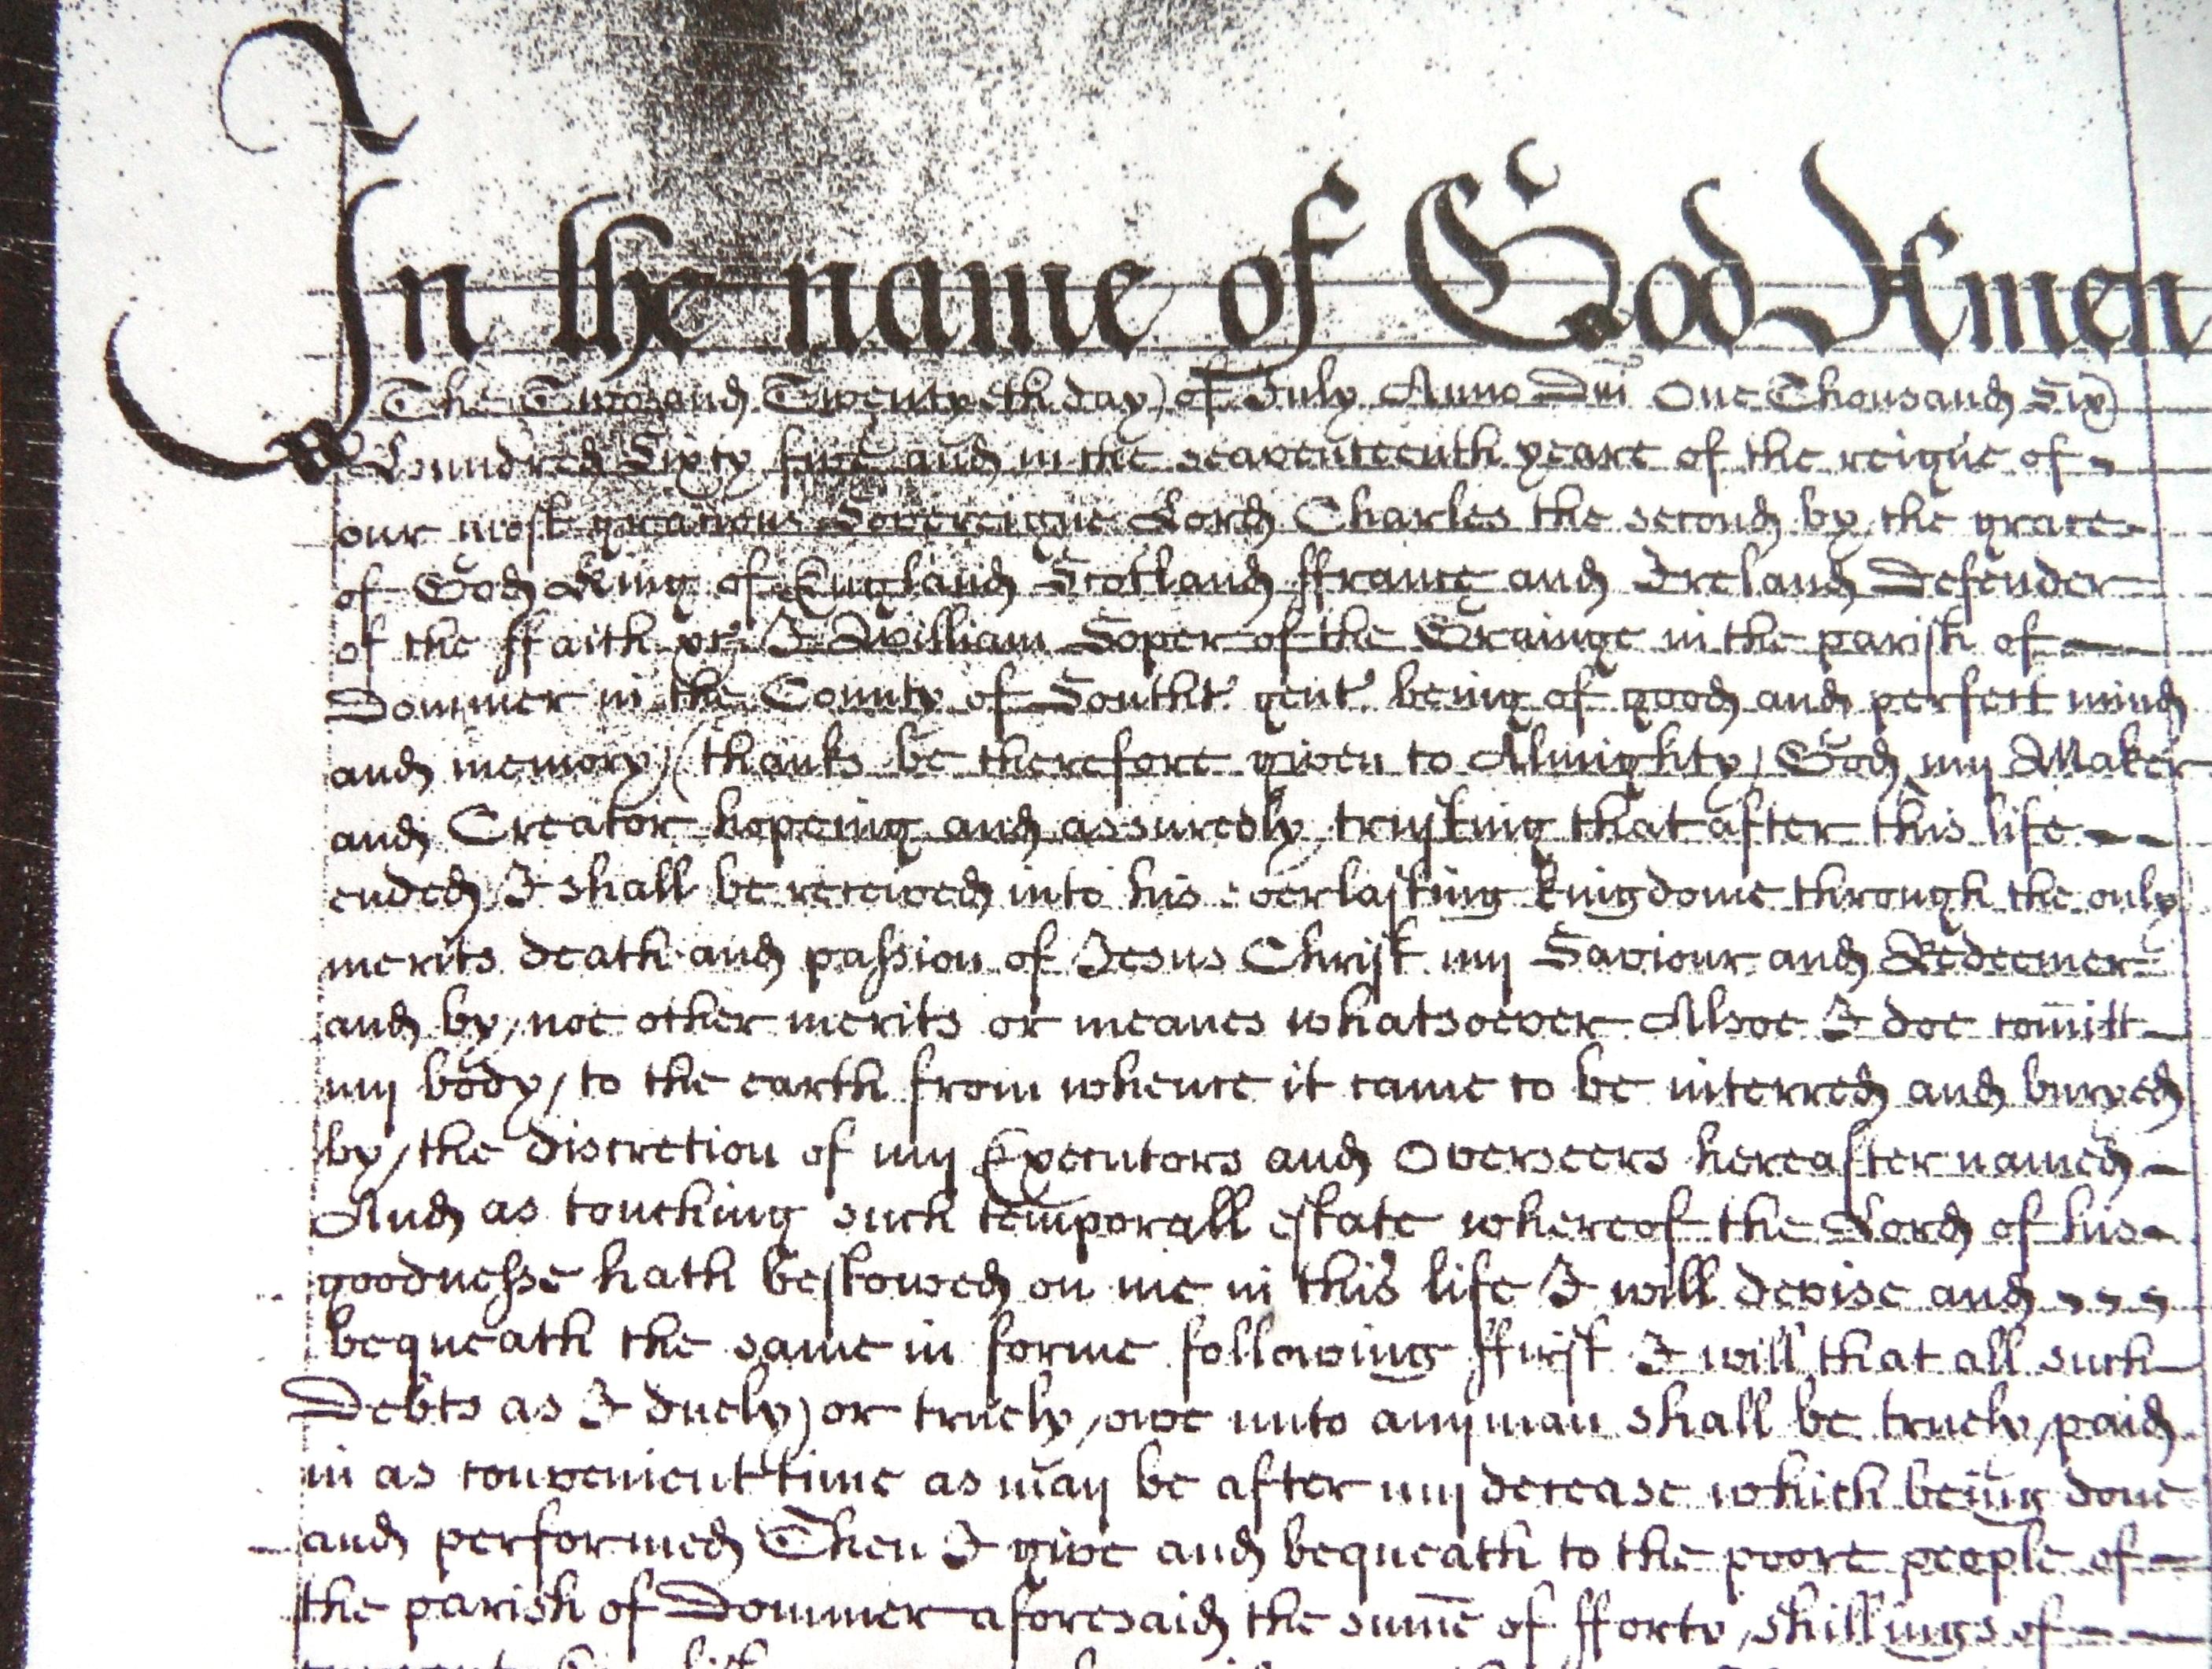 In the name of God Amen
The Two and Twentyeth day of July Anno Dni One Thousand Six
Hundred Sixty five and in the seaventeenth yeare of the reigne of
our most gracious Sovereigne Lord Charles the second by the grace
of God King of England Scotland ffrance and Ireland Defender
of the ffaith &c I William Soper of the Grainge in the parish of
Dommer in the County of Southt. gent. being of good and perfect mind
and memory (thanks be therefore given to Almighty God my Maker
and Creator hopeing and assuredly trusting that after this life
ended I shall be received into his everlasting kingdome through the only
merits death and passion of Jesus Christ my Saviour and Redeemer
and by noe other merits or meanes whatsoever Alsoe I doe comitt
my body to the earth from whence it came to be interred and buryed
by the discretion of my Executors and Overseers hereafter named
And as touching such temporall estate whereof the Lord of his
goodnesse hath bestowed on me in this life I will devise and
bequeath the same in forme following ffirst I will that all such
Debts as I duely or truely owe unto any man shall be truely paid
in as convenient time as may be after my decease which being done
and performed Then I give and bequeath to the poore people of
the parish of Dommer aforesaid the sume of fforty shillings of